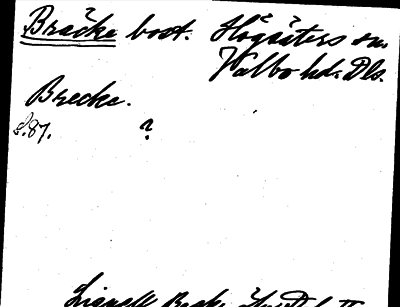 Bräcke bost. Högsäters sn.
Valbo hd. Dls.
Brecke.
s.87. ?
Lignell Besk.